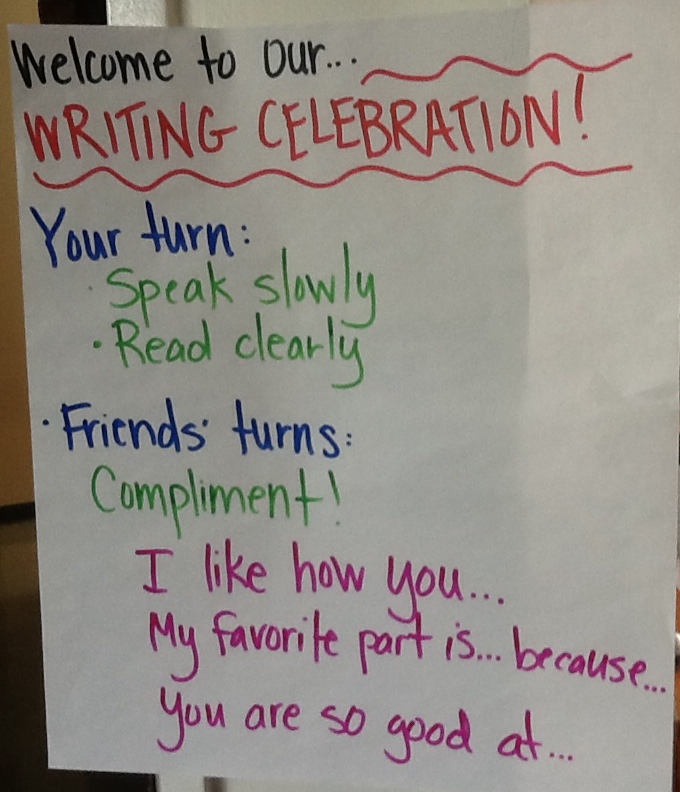 Welcome to our...
WRITING CELEBRATION!
Your turn:
· Speak slowly
· Read clearly
· Friends' turns:
Compliment!
I like how you...
My favorite part is... because...
You are so good at...